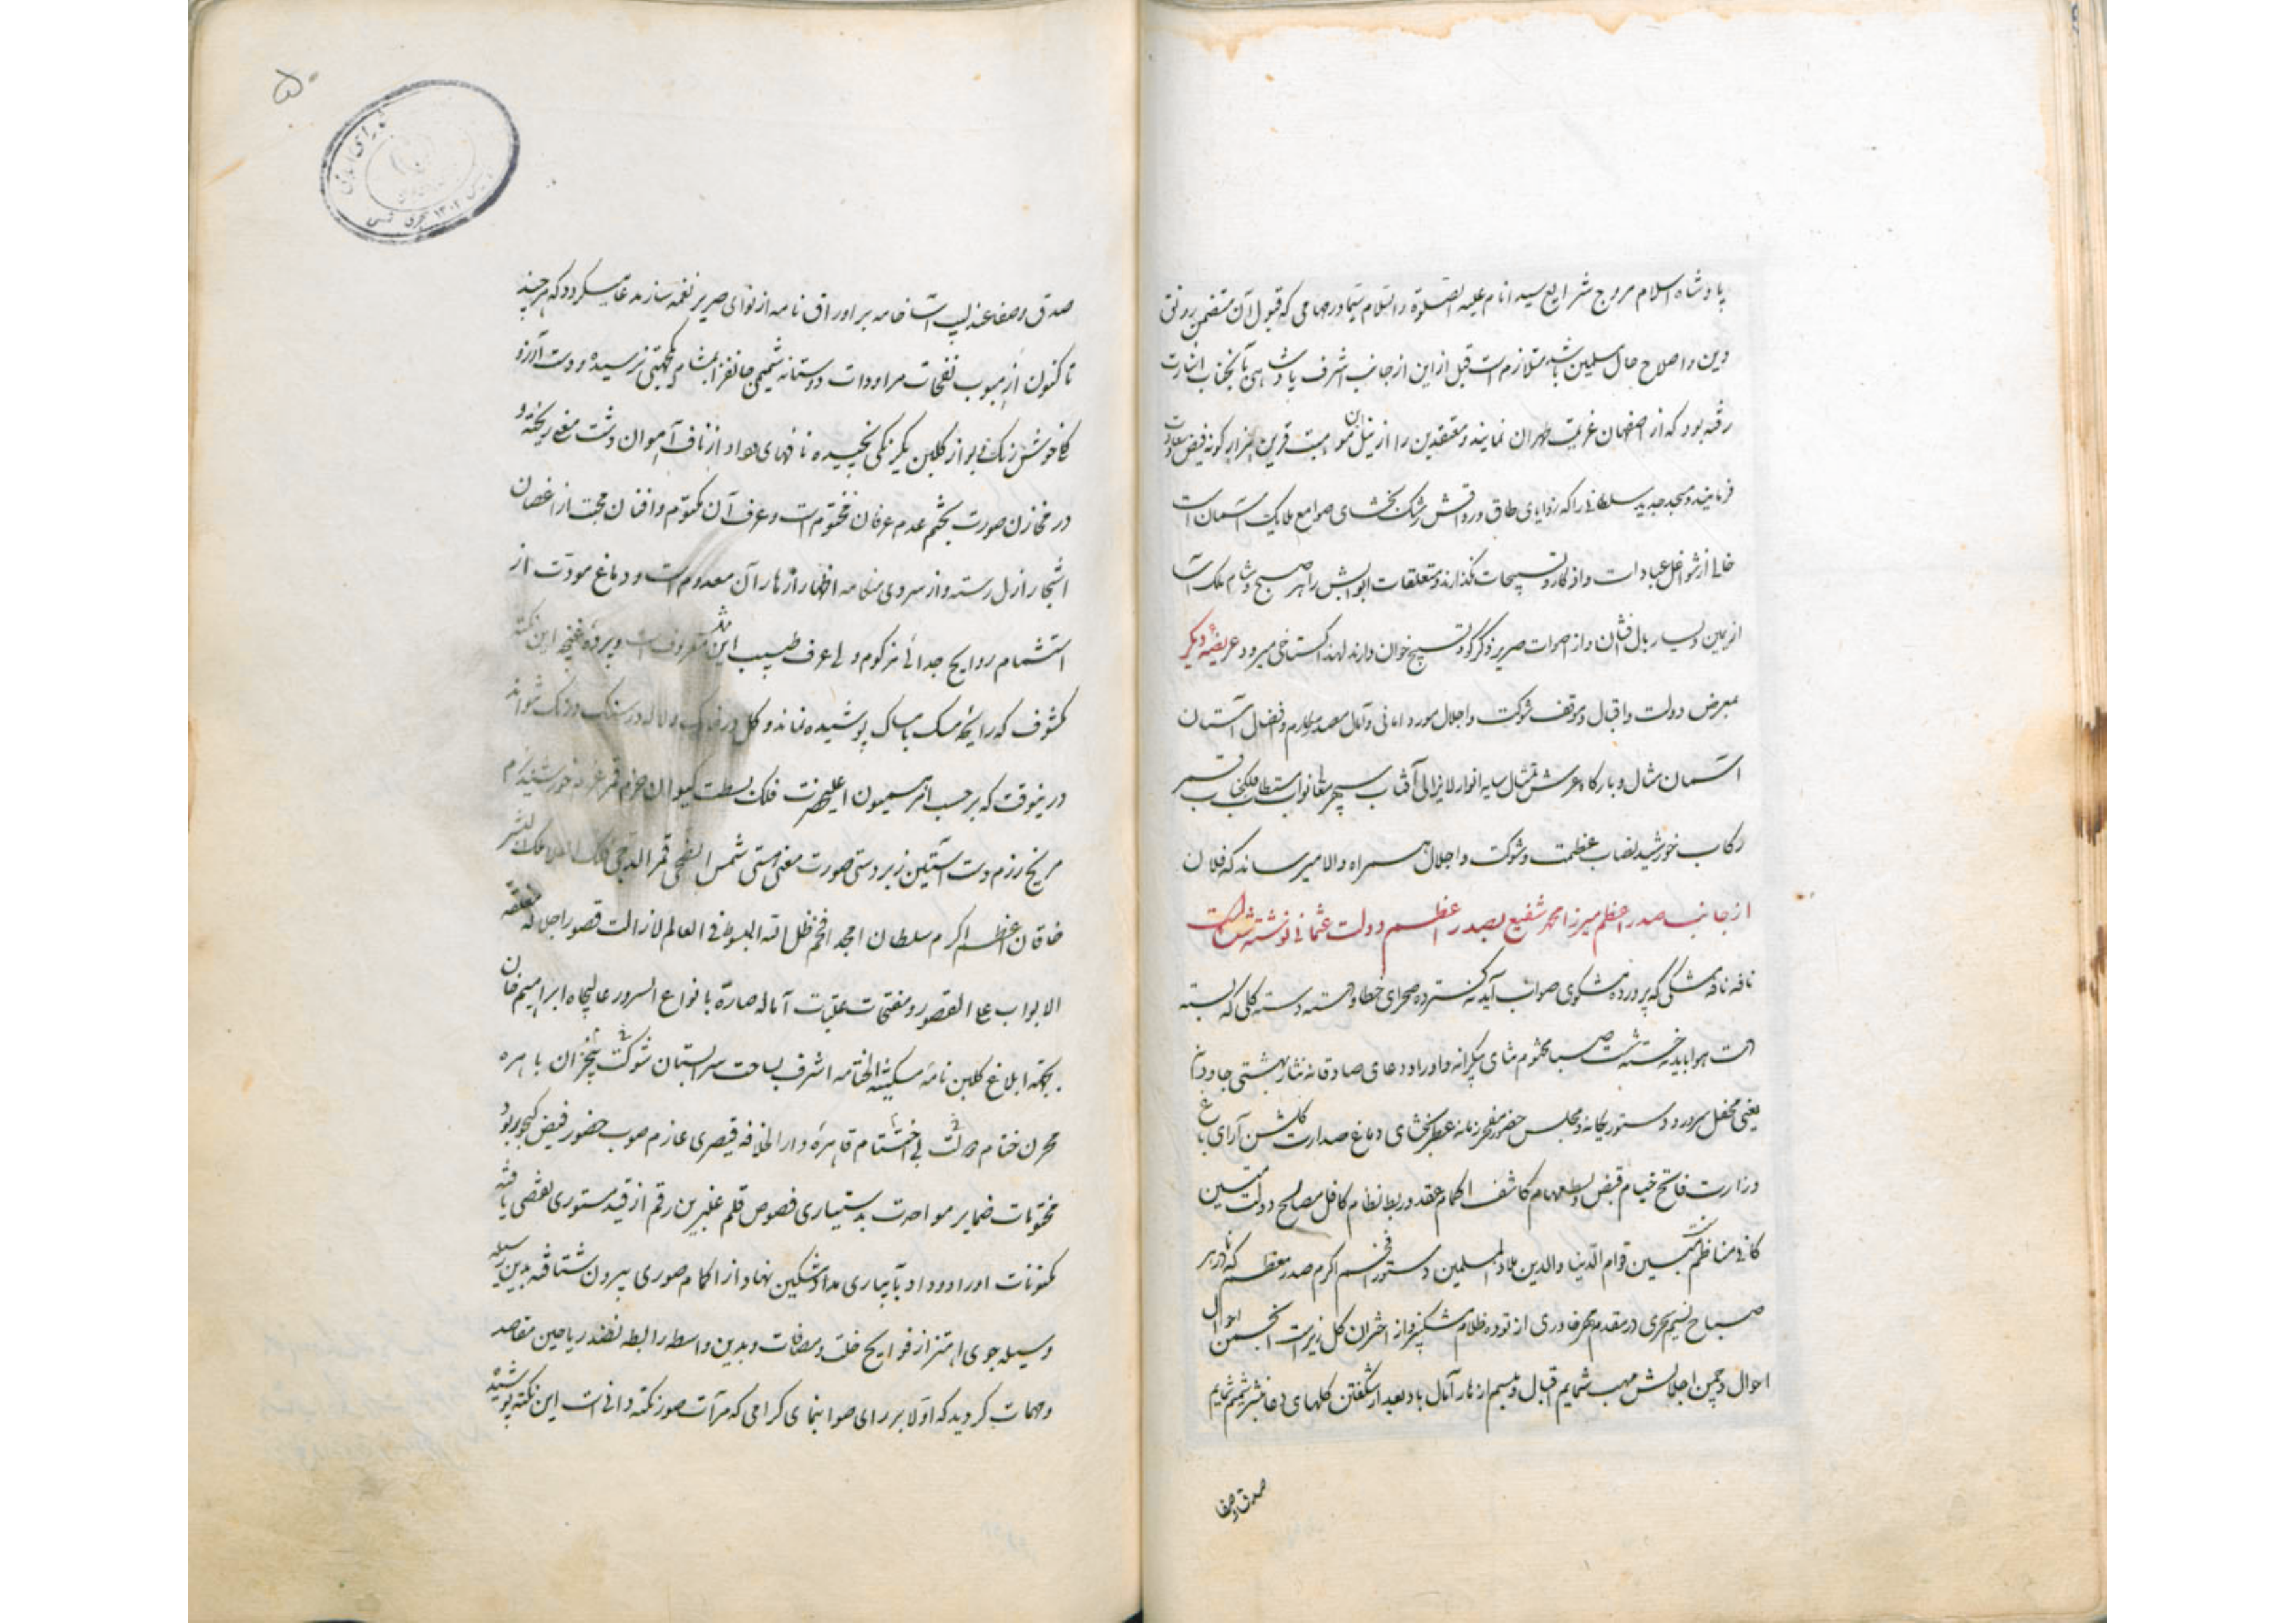 پادشاه اسلام مروج شرایع سید انام علیه الصلوة والسلام سیما در مهامی که قبول آن متضمن رونق
دین و اصلاح حال مسلمین باشد متلازم است قبل از این از جانب اشرف پادشاهی بآنجناب اشارت
رفته بود که از اصفهان عزیمت طهران نمایند و معتقدین را از نیل قرین هزار گونه فیض سعادت
فرمایند و مسجد جدید سلطانی را که زوایای طاق و رواقش رشک بخشای صوامع ملایک آسمان است
خالی از شواغل عبادات و اذکار و تسبیحات نگذارند و متعلقات ابوابش را هر صبح و شام ملک آسا
از یمین و یسار بال فشان و از اصوات صریر ذکرگو و تسبیح خوان دارند لهذا گستاخی میرود عریضه دیگر
بعرض دولت و اقبال و موقف شوکت و اجلال مورد امانی و آمال مصدر مکارم و افضال آستان
آسمان مثال و بارگاه عرش تمثال سایه انوار لایزالی آفتاب سپهر نواب مستطاب فلک جناب قمر
رکاب خورشید نصاب عظمت و شوکت و اجلال همراه والا میرساند که فلان
از جانب صدر اعظم میرزا محمد شفیع بصدر اعظم دولت عثمانی نوشته شده است
نافه نافه مشکی که پرورده مشکوی صواب آید نه گسترده صحرای خطا و دسته دسته گلی که بسته
دست هوا باید نه خسته شست صبا مختوم ثنای بیکرانه و اوراد دعای صادقانه نثار بهشتی جاودانی
یعنی محفل سرور دستور یگانه و مجلس حضور مفخر زمانه عطر بخشای دماغ صدارت گلشن آرای باغ
وزارت فاتح ختام قبض و بسط مهام کاشف اکمام عقد و ربط نظام کافل مصالح دولت متین
کافی مناظم قوام الدنیا والدین ملاذ المسلمین دستور افخم اکرم صدر معظم که تا در هر
صباح نسیم سحری در مقدم خاوری از توده ظلام مشکبیز و از اختران گل ریز است انجمن احوال
احوال و چمن اجلالش مهب شمایم اقبال و مبسم ازهار آمال باد بعد از شگفتن گلهای دعا بنشر شمیم شمایم
صدق و صفا
۵۰
صدق و صفا عندلیب آسا خامه بر اوراق نامه از نوای صریر نغمه ساز مدعا میگردد که هر چند
تا کنون از هبوب نفحات مراودات دوستانه شمیمی جانفزا بمشام نکهتی نرسیده و دست آرزو
گلی خوش رنگ و بو از گلبن یکرنگی نچیده نافهای وداد از ناف آهوان دشت معنی ریخته و
در مخازن صورت بختم عدم عرفان مختوم است و عرف آن مکتوم و افنان محبت از اغصان
اشجار ازل رسته و از سردی هنگامه اظهار ازهار آن معدوم است و دماغ مودت از
استشمام روایح جدائی مزکوم ولی عرف طیب این معروف است و پرده غنچه این نکته
مکشوف که رایحه مسک بامساک پوشیده نماند و گل در خاک و لاله در سنگ درنگ نتواند
درینوقت که بر حسب امر همیون اعلیحضرت فلک بسطت کیوان حزم قمر عزم خورشید بزم
مریخ رزم دست آستین زبردستی صورت معنی هستی شمس الضحی قمر الدجی
خاقان اعظم اکرم سلطان امجد افخم ظل الله المبسوط فی العالم لازالت قصور اجلاله منغلقة
الابواب علی القصور و مفتحات عتبات آماله صارة بانواع السرور عالیجاه ابراهیم خان
بجهة ابلاغ گلبن نامه مسکیة الختامه اشرف بساحت سرابستان شوکت بی خزان باهره
مخزن ختام دولت بی اختتام قاهره دارالخلافه قیصری عازم صوب حضور فیض گنجور بود
مختومات ضمایر مواحدت بدستیاری فصوص قلم عنبرین رقم از قید مستوری تفصی یافته
مکنونات اوراد وداد بآبیاری مداد مشکین نهاد از اکمام صوری بیرون شتافته بدین وسیله
وسیله جوی اهتزاز فوایح خلت و مصافات و بدین واسطه رابطه نضد ریاحین مقاصد
و مهمات گردید که اولا بر رای صوابنمای گرامی که مرآت صور نکته دانی است این نکته پوشیده